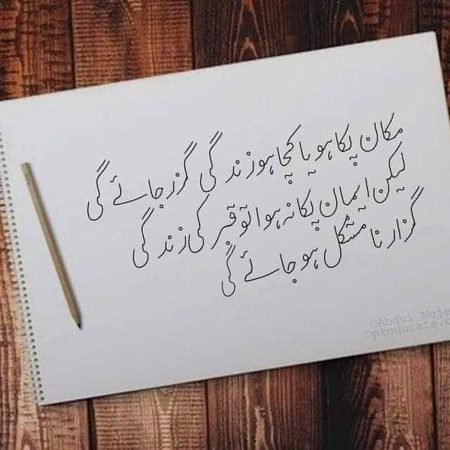 مکان پکا ہو یا کچا ہو زندگی گزر جائے گی
لیکن ایمان پکا نہ ہوا تو قبر کی زندگی
گزارنا مشکل ہو جائے گی
©Abdul Muje
©pkeducate.c